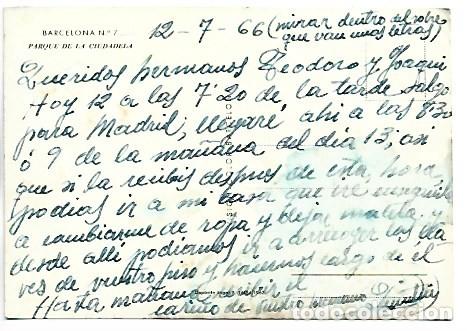 BARCELONA Nº 7
PARQUE DE LA CIUDADELA
12-7-66 (mirar dentro del sobre
que van unas letras)
Queridos hermanos Teodoro y Joaqui
Hoy 12 a las 7'20 de la tarde salgo
para Madrid; llegaré ahi a las 8'30
ó 9 de la mañana del día 13; asi
que si la recibis despues de esta hora,
podias ir a mi casa que iré
a cambiarme de ropa y dejar maleta, y
desde allí podíamos ir a arreglar las lla
ves de vuestro piso y hacernos cargo de él
Hasta mañana recibir el
cariño de vuestro hermano
todocoleccion.net